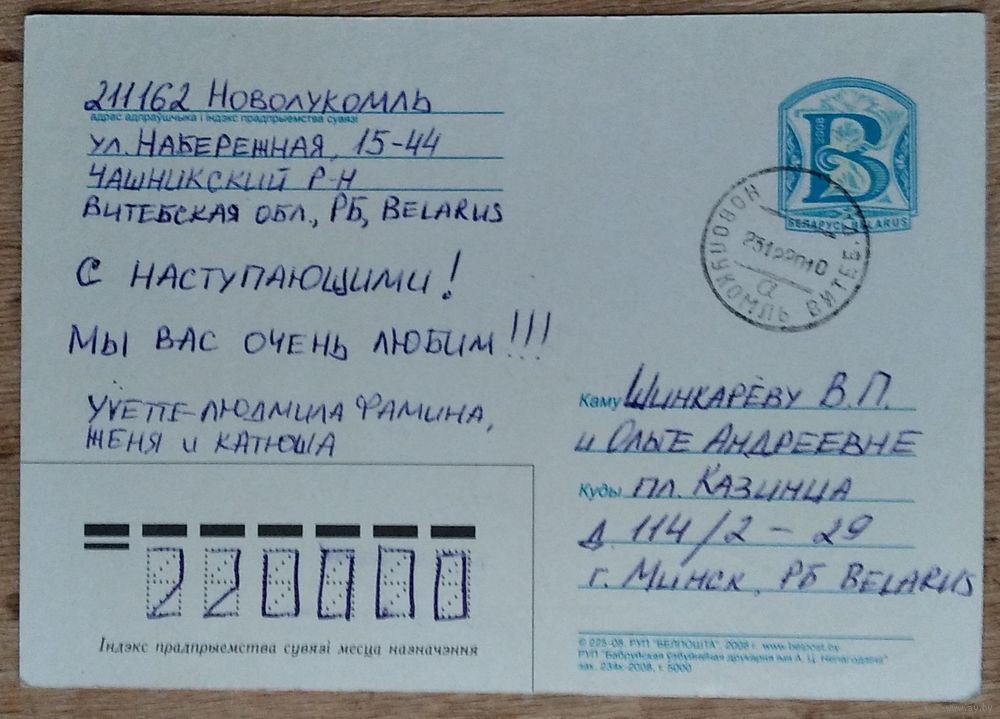 211162 Новолукомль
адрас адпраўшчыка і індэкс прадпрыемства сувязі
ул. Набережная, 15-44
Чашникский р-н
Витебская обл., РБ, BELARUS
С наступающими!
Мы вас очень любим!!!
Yvette-Людмила Фамина,
Женя и Катюша
2008
B
БЕЛАРУСЬ BELARUS
НОВОЛУКОМЛЬ ВИТЕБ.
а
Каму Шинкарёву В.П.
и Ольге Андреевне
Куды пл. Казинца
д. 114/2-29
г. Минск, РБ BELARUS
220000
Індэкс прадпрыемства сувязі месца назначэння
© 225-08. РУП "БЕЛПОШТА", 2008 г. www.belpost.by
РУП "Бабруйская ўзбуйненая друкарня імя А. Ц. Непагодзіна"
зак. 234к-2008, т. 5000
www.ay.by